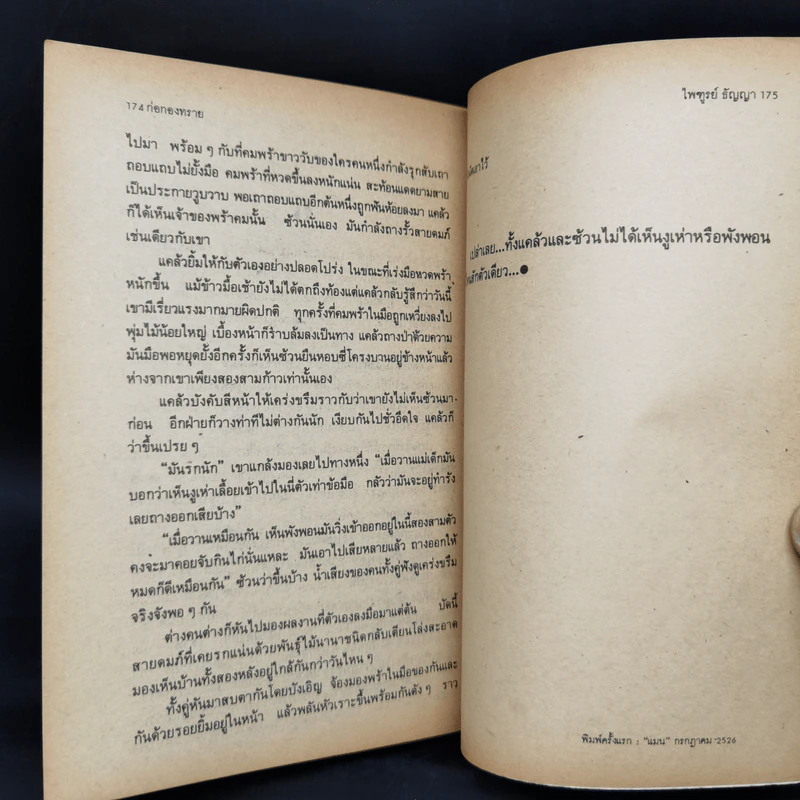 174 ก่อกองทราย
ไปมา พร้อม ๆ กับที่คมพร้าขาววับของใครคนหนึ่งกำลังรุกสับเถา
ถอบแถบไม่ยั้งมือ คมพร้าที่หวดขึ้นลงหนักแน่น สะท้อนแดดยามสาย
เป็นประกายวูบวาบ พอเถาถอบแถบอีกต้นหนึ่งถูกฟันห้อยลงมา แคล้ว
ก็ได้เห็นเจ้าของพร้าคมนั้น ซ้วนนั่นเอง มันกำลังถางรั้วสายดมภ์
เช่นเดียวกับเขา
แคล้วยิ้มให้กับตัวเองอย่างปลอดโปร่ง ในขณะที่เร่งมือหวดพร้า
หนักขึ้น แม้ข้าวมื้อเช้ายังไม่ได้ตกถึงท้องแต่แคล้วกลับรู้สึกว่าวันนี้
เขามีเรี่ยวแรงมากมายผิดปกติ ทุกครั้งที่คมพร้าในมือถูกเหวี่ยงลงไป
พุ่มไม้น้อยใหญ่ เบื้องหน้าก็ราบล้มลงเป็นทาง แคล้วถางป่าด้วยความ
มันมือพอหยุดยั้งอีกครั้งก็เห็นซ้วนยืนหอบซี่โครงบานอยู่ข้างหน้าแล้ว
ห่างจากเขาเพียงสองสามก้าวเท่านั้นเอง
แคล้วบังคับสีหน้าให้เคร่งขรึมราวกับว่าเขายังไม่เห็นซ้วนมา
ก่อน อีกฝ่ายก็วางท่าทีไม่ต่างกันนัก เงียบกันไปชั่วอึดใจ แคล้วก็
ว่าขึ้นเปรย ๆ
“มันรกนัก” เขาแกล้งมองเลยไปทางหนึ่ง “เมื่อวานแม่เด็กมัน
บอกว่าเห็นงูเห่าเลื้อยเข้าไปในนี่ตัวเท่าข้อมือ กลัวว่ามันจะอยู่ทำรัง
เลยถางออกเสียบ้าง”
“เมื่อวานเหมือนกัน เห็นพังพอนมันวิ่งเข้าออกอยู่ในนี้สองสามตัว
คงจะมาคอยจับกินไก่นั่นแหละ มันเอาไปเสียหลายแล้ว ถางออกให้
หมดก็ดีเหมือนกัน” ซ้วนว่าขึ้นบ้าง น้ำเสียงของคนทั้งคู่ฟังดูเคร่งขรึม
จริงจังพอ ๆ กัน
ต่างคนต่างก็หันไปมองผลงานที่ตัวเองลงมือมาแต่ต้น บัดนี้
สายดมภ์ที่เคยรกแน่นด้วยพันธุ์ไม้นานาชนิดกลับเตียนโล่งสะอาด
มองเห็นบ้านทั้งสองหลังอยู่ใกล้กันกว่าวันไหน ๆ
ทั้งคู่หันมาสบตากันโดยบังเอิญ จ้องมองพร้าในมือของกันและ
กันด้วยรอยยิ้มอยู่ในหน้า แล้วพลันหัวเราะขึ้นพร้อมกันดัง ๆ ราว
ไพฑูรย์ ธัญญา 175
เปล่าเลย...ทั้งแคล้วและซ้วนไม่ได้เห็นงูเห่าหรือพังพอน
สักตัวเดียว...●
พิมพ์ครั้งแรก : “แมน” กรกฎาคม 2526